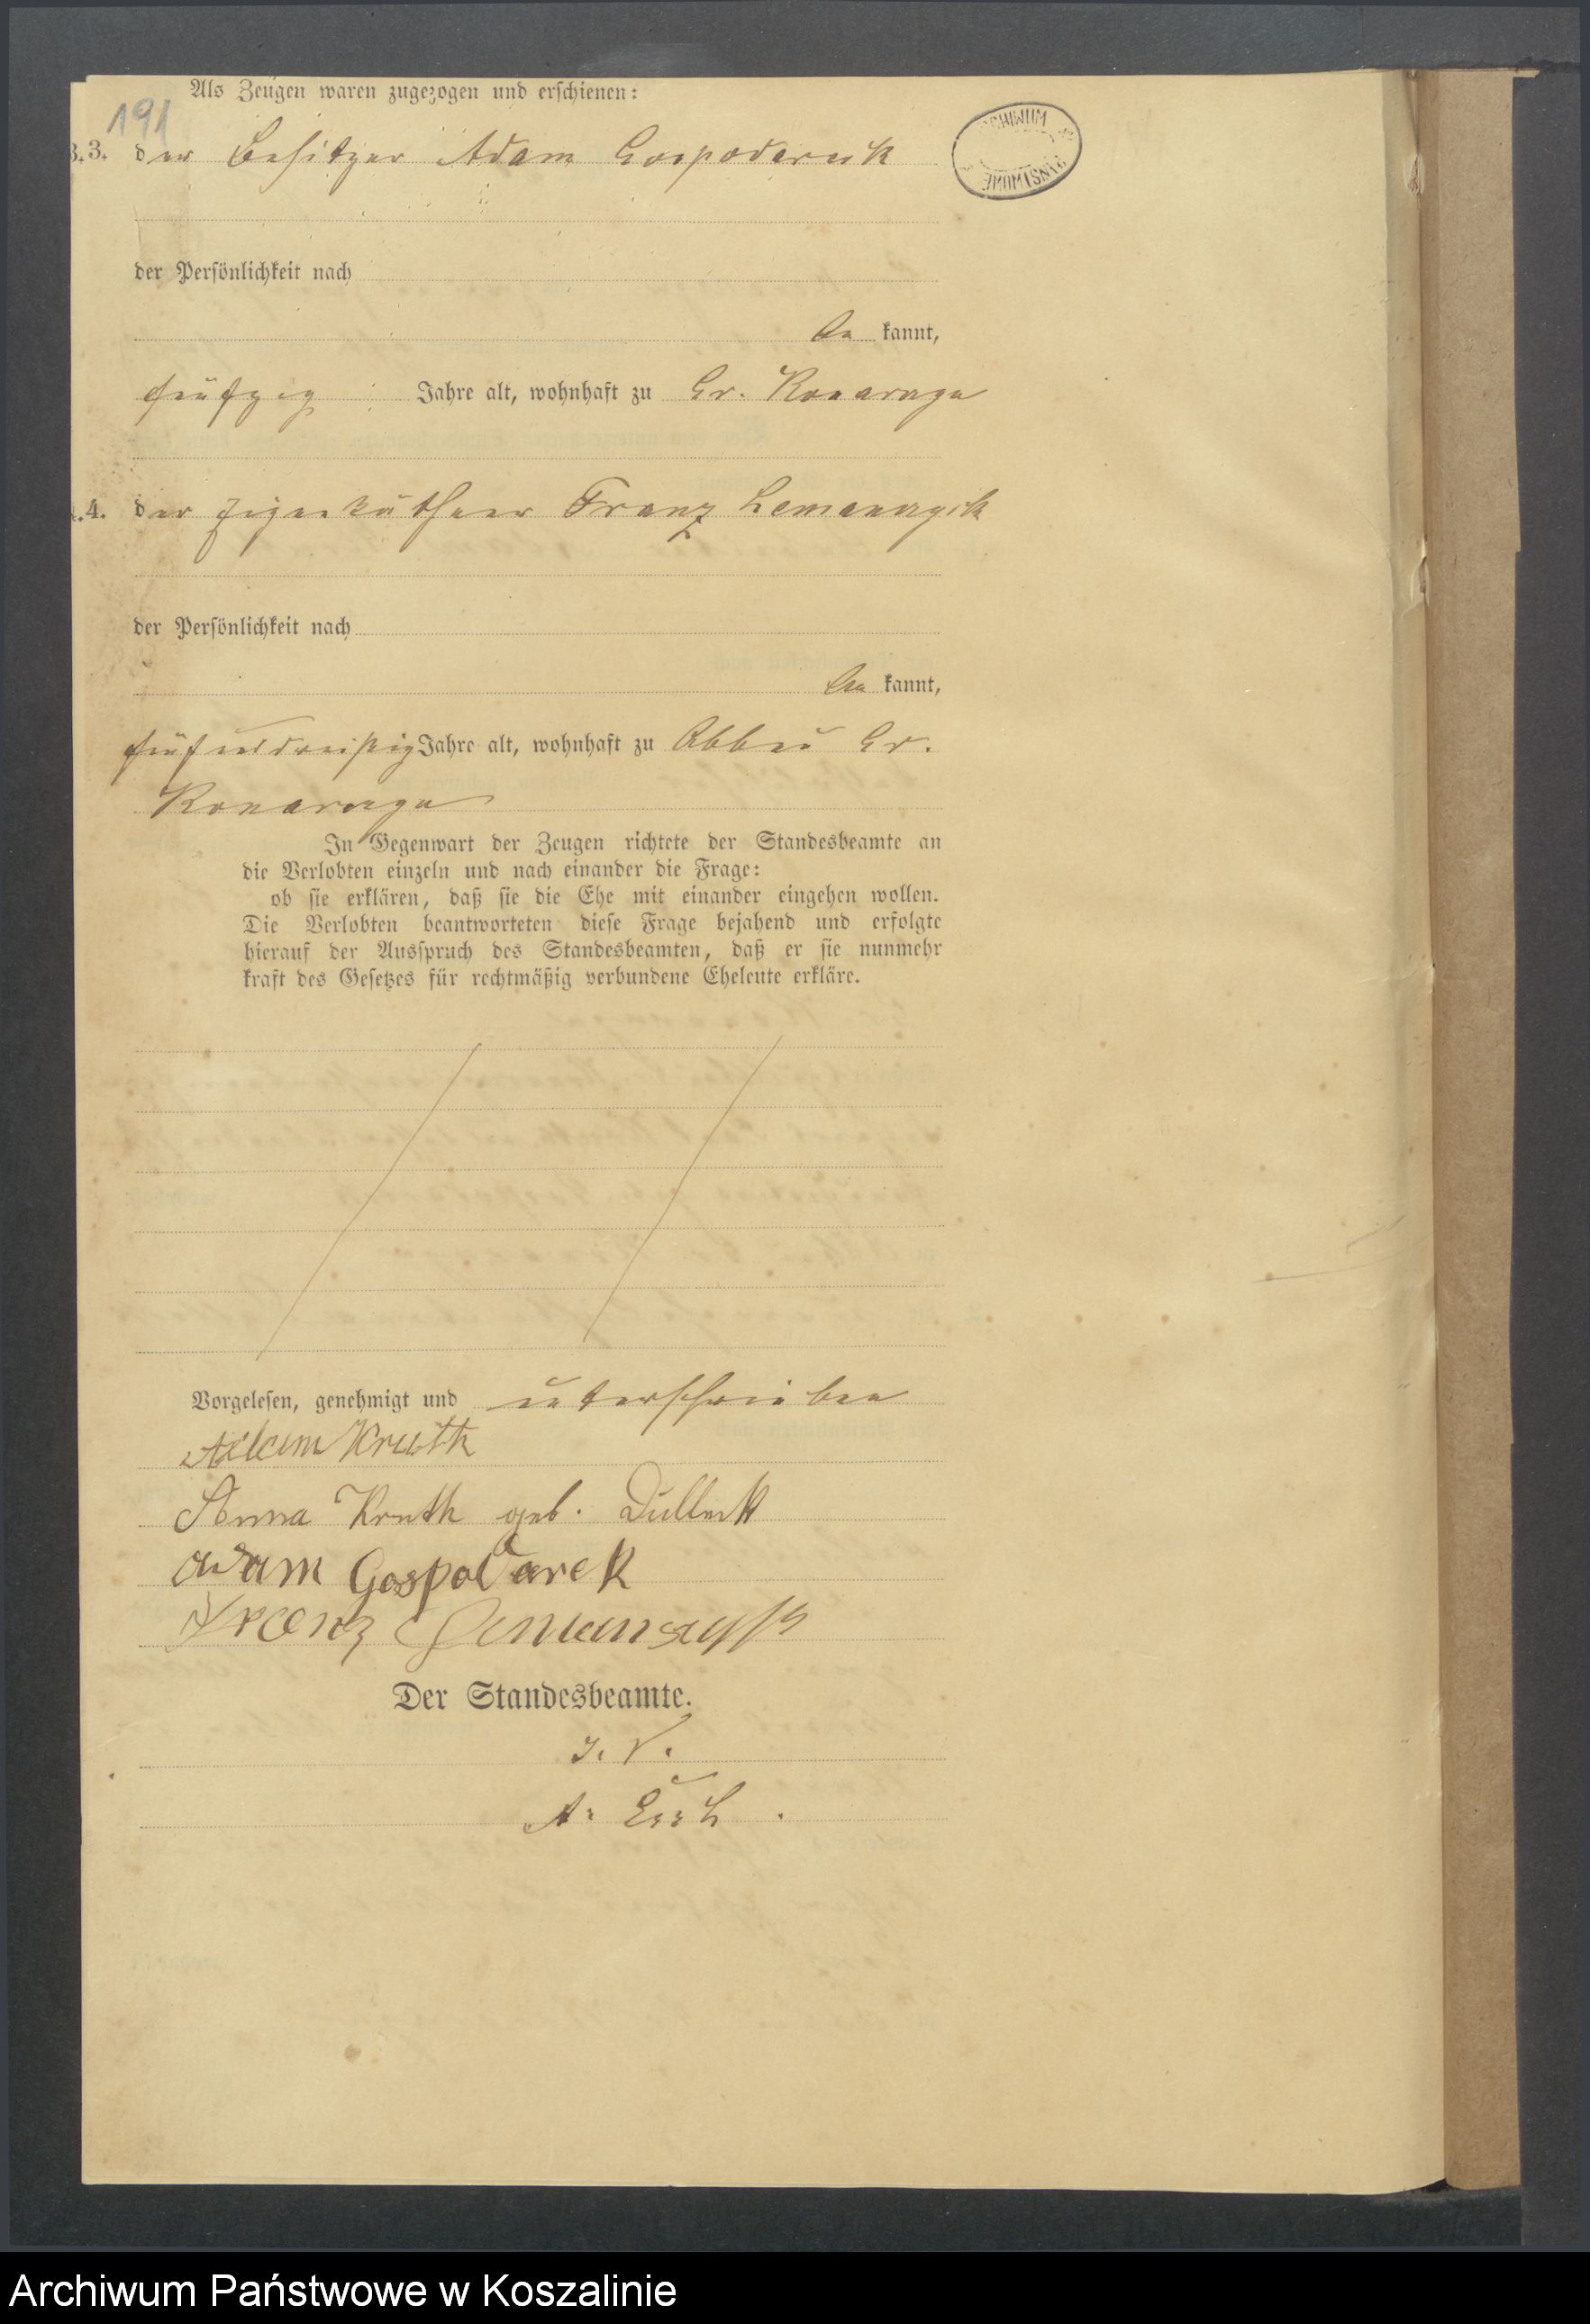 Als Zeugen waren zugezogen und erschienen:
191
3. der Besitzer Adam Gospodarek
der Persönlichkeit nach
be kannt,
fünfzig Jahre alt, wohnhaft zu Gr. Konarczyn
4. der Eigenkäthner Franz Lemanczyk
der Persönlichkeit nach
be kannt,
fünfunddreißig Jahre alt, wohnhaft zu Abbau Gr.
Konarczyn
In Gegenwart der Zeugen richtete der Standesbeamte an
die Verlobten einzeln und nach einander die Frage:
ob sie erklären, daß sie die Ehe mit einander eingehen wollen.
Die Verlobten beantworteten diese Frage bejahend und erfolgte
hierauf der Ausspruch des Standesbeamten, daß er sie nunmehr
kraft des Gesetzes für rechtmäßig verbundene Eheleute erkläre.
Vorgelesen, genehmigt und unterschrieben
Adam Kruth
Anna Kruth geb.
Adam Gospodarek
Franz Lemanczyk
Der Standesbeamte.
I. V.
A.
Archiwum Państwowe w Koszalinie